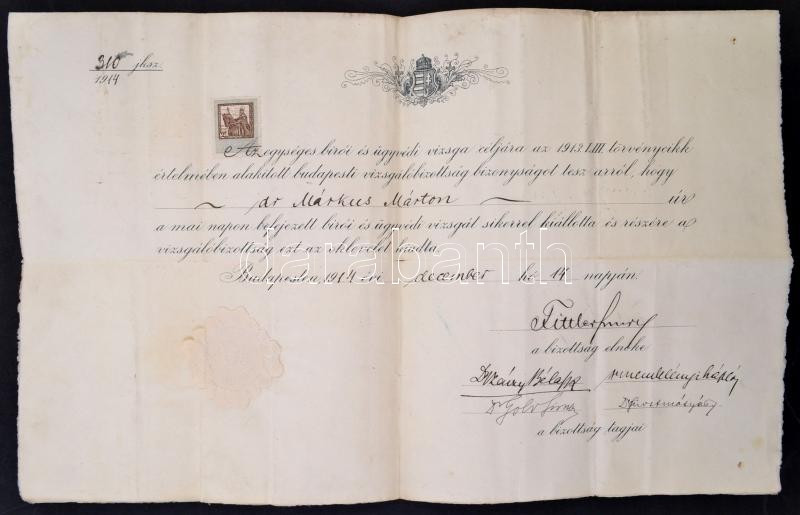 310 jksz.
1914
Az egységes birói és ügyvédi vizsga céljára az 1913. LIII. törvénycikk
értelmében alakitott budapesti vizsgálóbizottság bizonyságot tesz arról, hogy
dr Márkus Márton úr
a mai napon befejezett birói és ügyvédi vizsgát sikerrel kiállotta és részére a
vizsgálóbizottság ezt az oklevelet kiadta.
Budapesten, 1914 évi december hó 14 napján.
darabanth
a bizottság elnöke
Béla
Dr
a bizottság tagjai